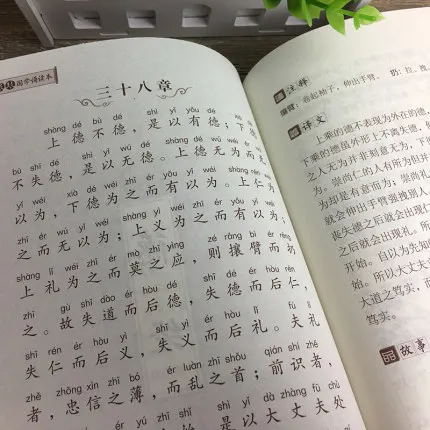 国学诵读本
三十八章
shàng dé bù dé shì yǐ yǒu dé
上德不德，是以有德；下德
bù shī dé shì yǐ wú dé shàng dé wú wéi ér wú
不失德，是以无德。上德无为而无
yǐ wéi xià dé wéi zhī ér yǒu yǐ wéi shàng rén wéi
以为，下德为之而有以为。上仁为
zhī ér wú yǐ wéi shàng yì wéi zhī ér yǒu yǐ wéi
之而无以为；上义为之而有以为；
shàng lǐ wéi zhī ér mò zhī yìng zé rǎng bì ér rēng
上礼为之而莫之应，则攘臂而扔
zhī gù shī dào ér hòu dé shī dé ér hòu rén
之。故失道而后德，失德而后仁，
shī rén ér hòu yì shī yì ér hòu lǐ fū lǐ
失仁而后义，失义而后礼。夫礼
zhě zhōng xìn zhī bó ér luàn zhī shǒu qián shí zhě
者，忠信之薄，而乱之首；前识者，
shì yǐ dà zhàng fū chǔ
是以大丈夫处
注释
攘臂：卷起袖子，伸出手臂。 扔：拉、拽。
译文
上乘的德不表现为外在的德，
下乘的德虽外形上不离失德，
之人无为并非刻意无为，下
为。崇尚仁的人有所为但并
为却是有意而为；崇尚礼
就会伸出手臂强拽别人
丧失德之后就会出现仁
之后就会出现礼。所
开始。自以为先知
始。所以大丈夫
大道之笃实，而
笃实。
故事